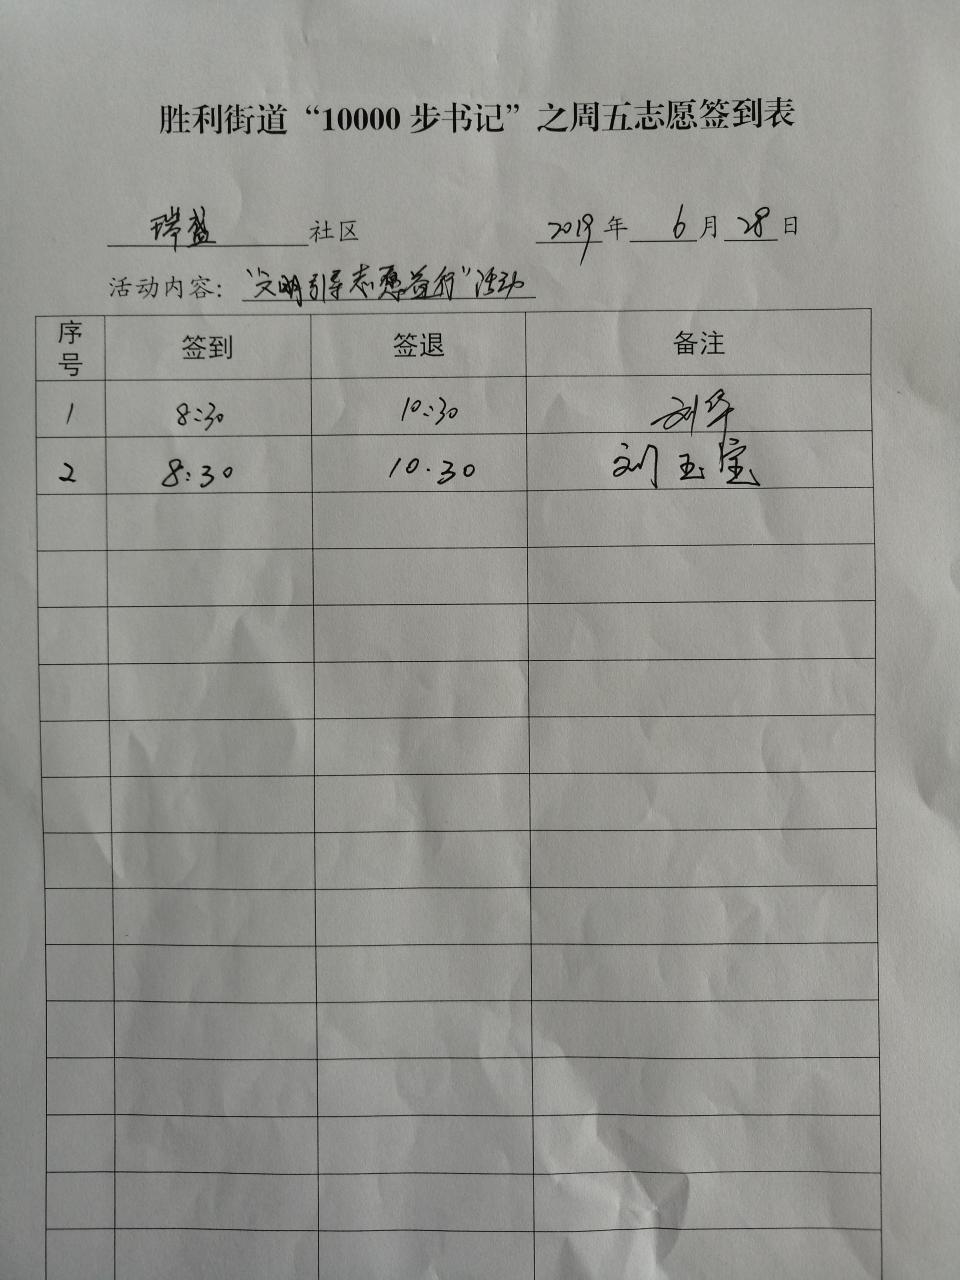 胜利街道“10000步书记”之周五志愿签到表
瑞盛 社区 2019年 6月28日
活动内容：“文明引导志愿益行”活动
序号 签到 签退 备注
1 8:30 10:30 刘华
2 8:30 10.30 刘玉宝